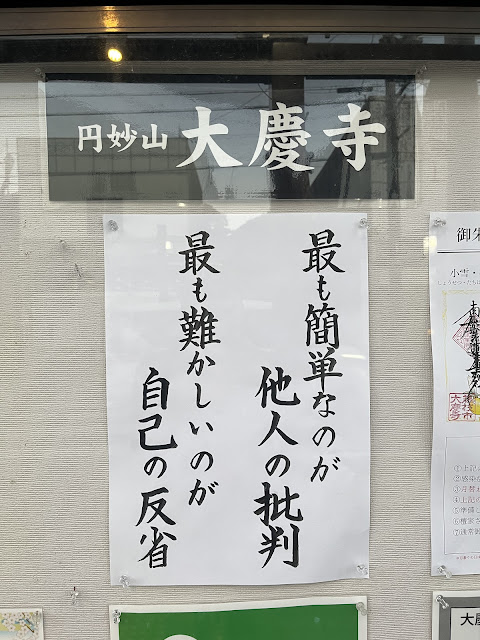 円妙山 大慶寺
最も簡単なのが
他人の批判
最も難かしいのが
自己の反省
御朱
小雪・
大慶寺